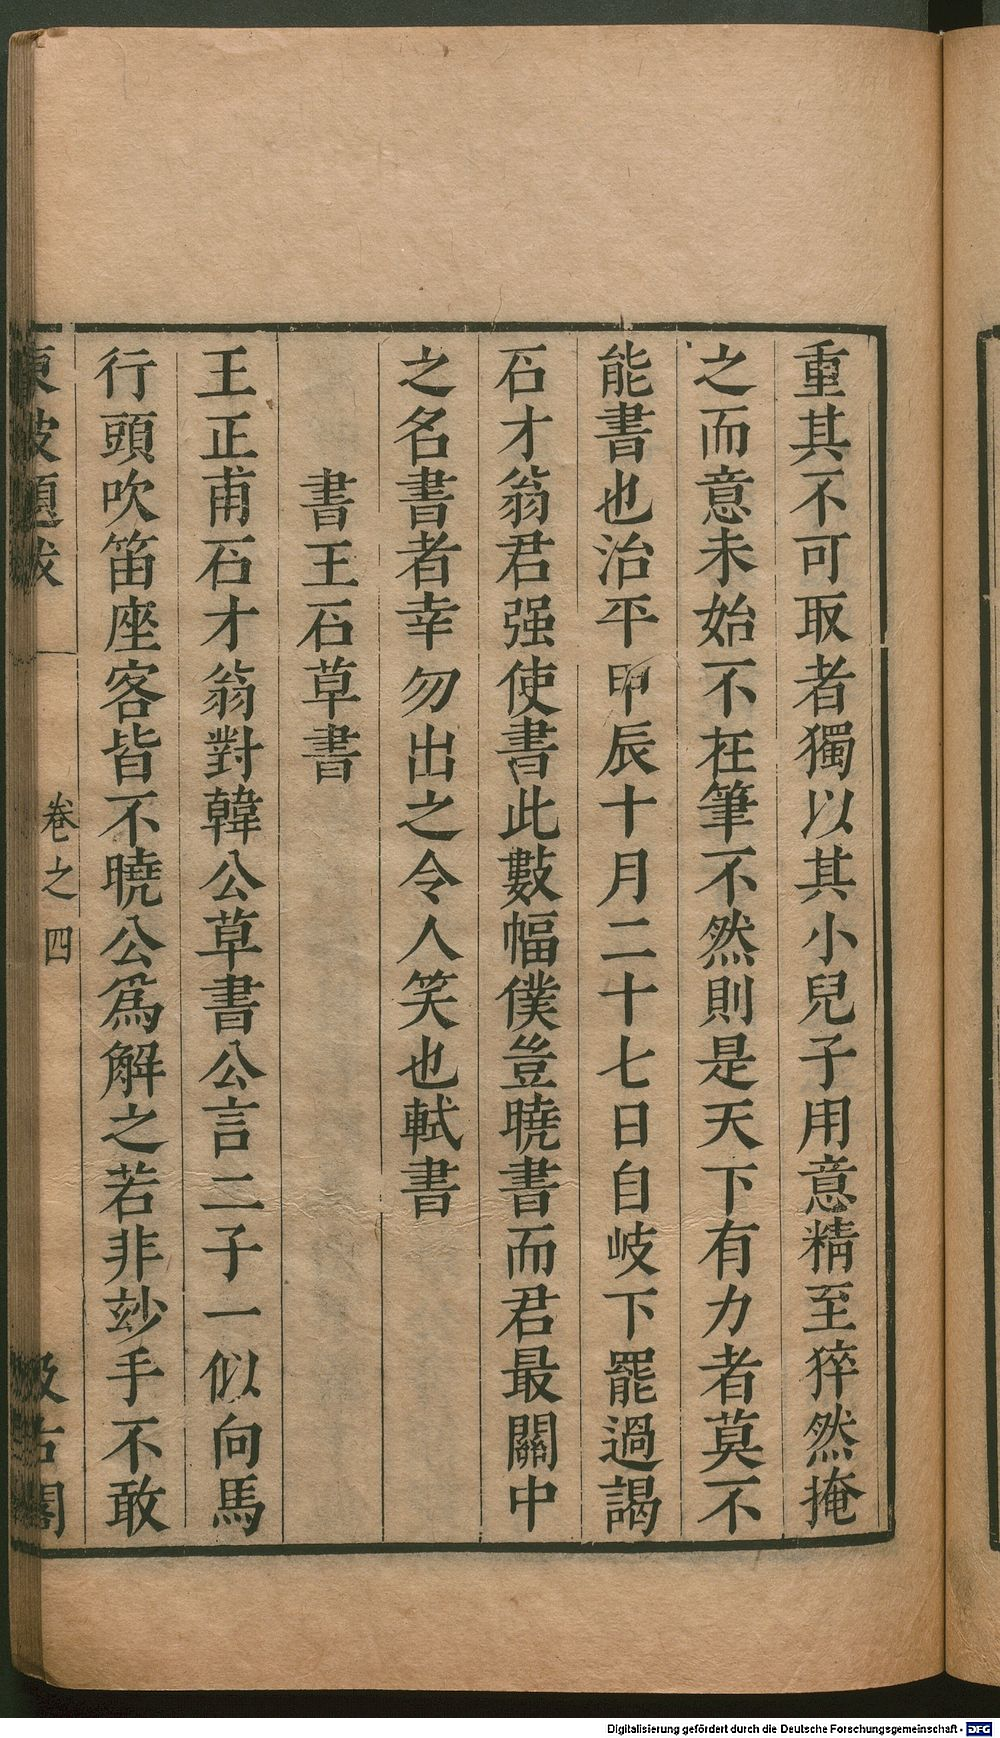 重其不可取者獨以其小兒子用意精至猝然掩
之而意未始不在筆不然則是天下有力者莫不
能書也治平甲辰十月二十七日自岐下罷過謁
石才翁君强使書此數幅僕豈曉書而君最關中
之名書者幸勿出之令人笑也軾書
書王石草書
王正甫石才翁對韓公草書公言二子一似向馬
行頭吹笛座客皆不曉公爲解之若非玅手不敢
東坡題跋
卷之四
汲古閣
Digitalisierung gefördert durch die Deutsche Forschungsgemeinschaft - DFG